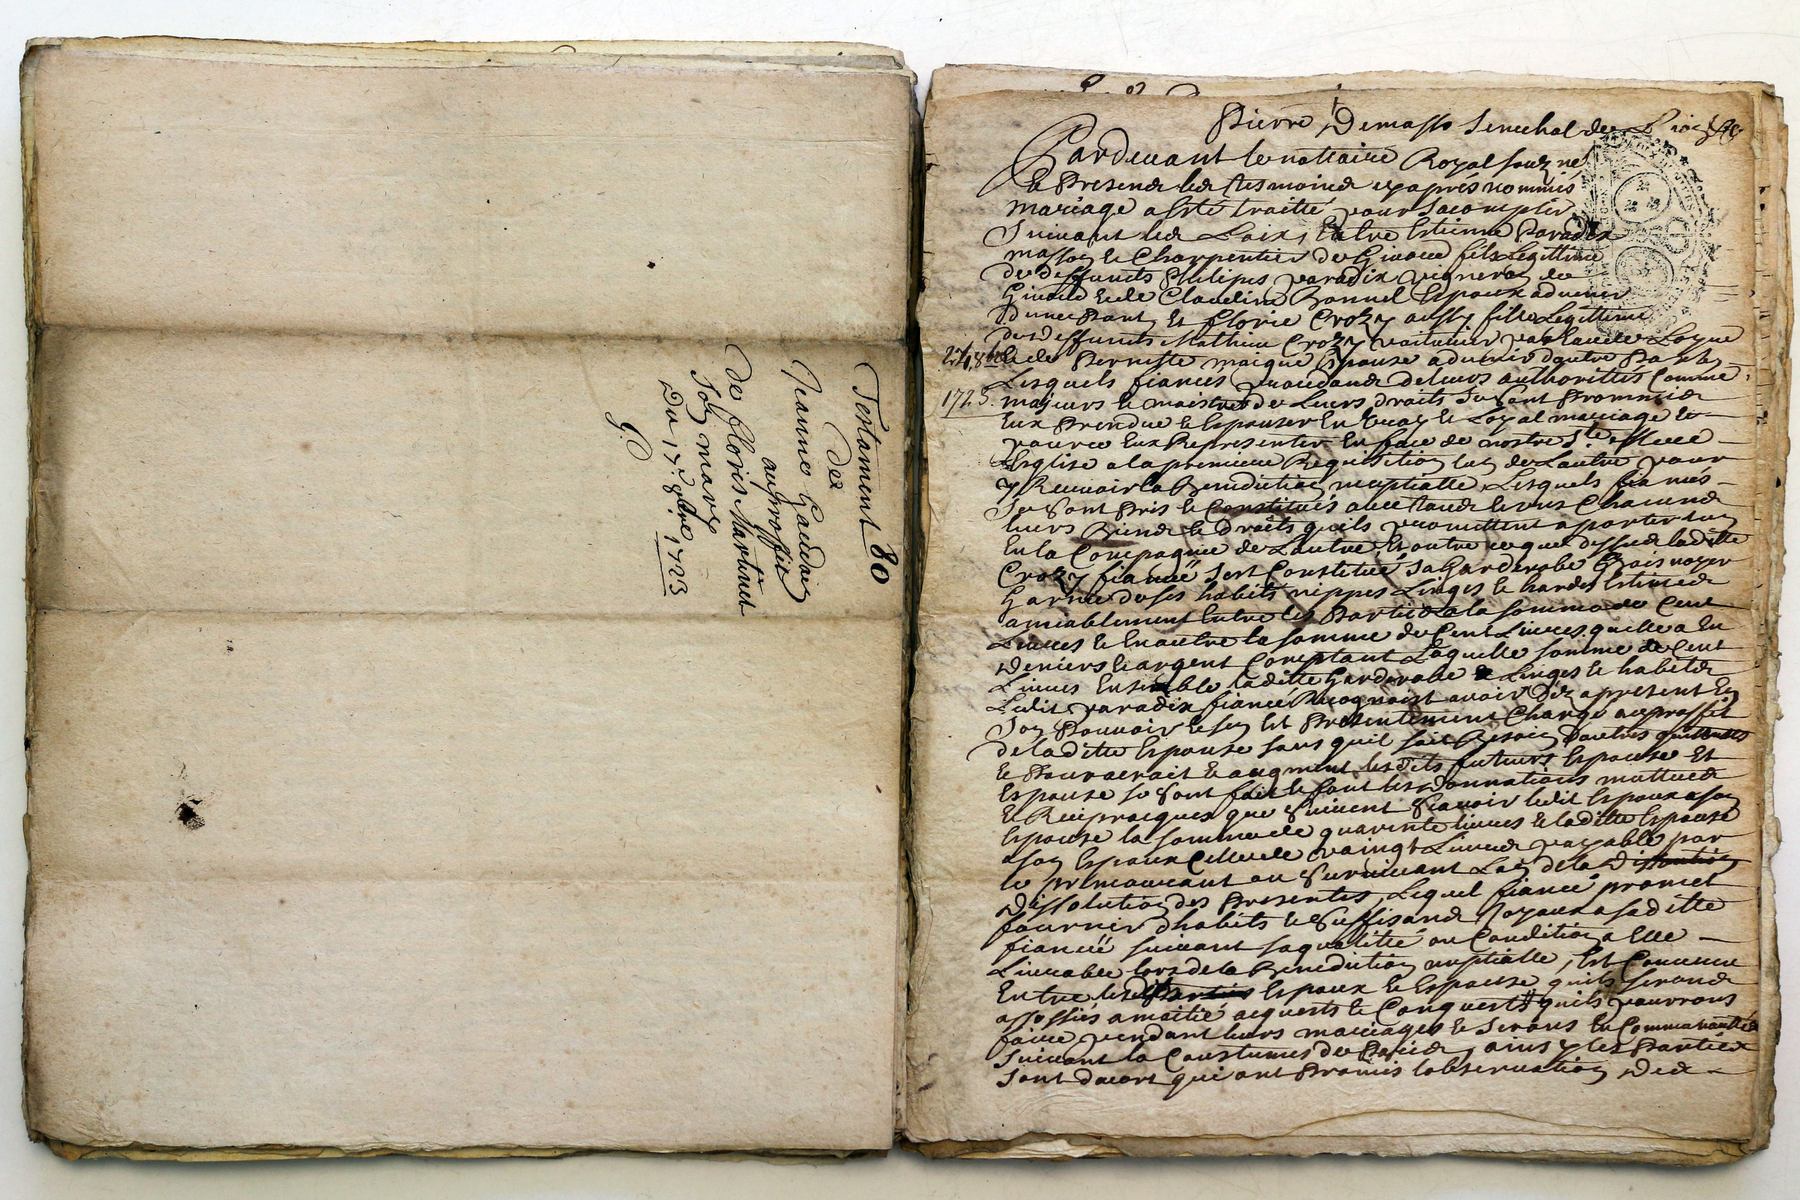 Testament 80
de
Jeanne Gaudon
au proffit
de floris Martinet
Son mary
Du 17.e 8bre 1723
G
Pierre Demasso Senechal de
Pardeuant le nottaire Royal souz.né
& Presens les tesmoins cy apres nommés
mariage a esté traitté pour sacomplir
Suiuant les Loix, Entre Estienne Paradix
masson & Charpentier de fils Legittime
de deffuncts Philipes paradix vigneron de
& de Claudine Bonnel Espoux aduenir
Dune Part, Et florie Crozy aussy fille Legittime
des deffuncts Mathieu Crozy voiturier par
27 8bre
& de Pernette Espouse aduenir dautre Part,
1725.
Lesquels fiancés proceddans de leurs authorittés Comme
majeurs & maistres de Leurs droits Se sont Promis
Eux Prendre & Espouser En vray & Loyal mariage &
pource Eux Representer En face de nostre S.te Mere
Eglise a la premiere Requisition lun de Lautre pour
y Receuoir la Benediction nuptialle, Lesquels fiancés
Se sont Pris & Constitués auec tous & vns Chacuns
leurs Biens & Droits quils promettent aporter lun
En la Compagnie de Lautre Et outre ce que dessus laditte
Crozy fiancée sest Constitué sa Garderobe Bois noyer
Garnie de ses habits nippes Linges & hardes Estimés
amiablement Entre les Parties a la somme de Cent
Liures & En outre la somme de Cent Liures quelle a En
deniers & argent Comptant Laquelle somme de Cent
Liures Ensemble laditte Garderobe & Linges & habits
Ledit paradix fiancé Recognoist auoir dez apresent En
Son Pouuoir & sen Est Presentement Chargé au proffit
de laditte Espouse sans quil soit Besoin dautres quittances
& Pour & augment lesdits futurs Espoux Et
Espouse se sont fait & font les donnations mutuels
& Reciproques que Suiuent Scauoir ledit Espoux a son
Espouse la somme de quarente liures & laditte Espouse
a son Espoux Celle de vaingt Liures payable par
le premourant au Suruiuant Lors de la
Dissolution des Presentes, Lequel fiancé promet
fournir dhabits & Suffisans Joyaux a saditte
fiancée suiuant sa qualitté ou Condition a Elle
Liurables lors de la Benediction nuptialle, Est Conuenu
Entre lesdits Espoux & Espouse quils seront
assossiés a moitié acquests & Conquests quils pourrons
faire pendant leurs mariages & serons En Communautté
suiuant la Coustumes de Paris, ainsy les Parties
sont dacort qui ont Promis lobseruation Des